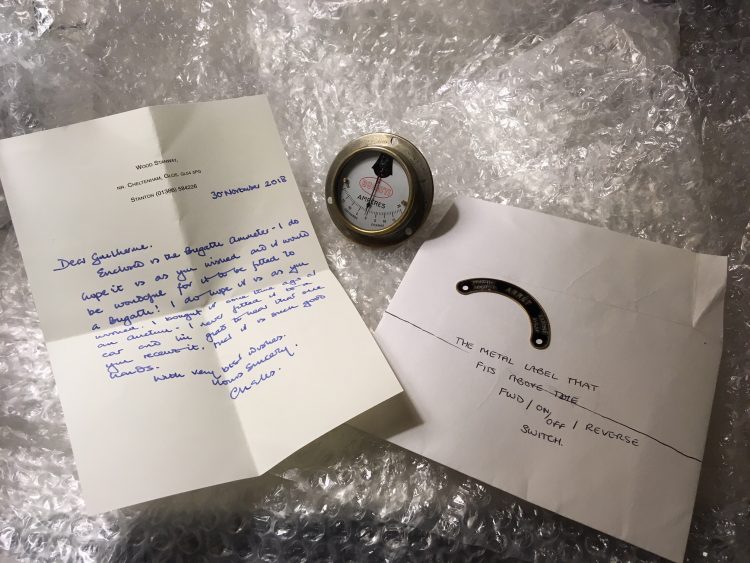 WOOD STANWAY,
NR. CHELTENHAM, GLOS. GL54 5PG
STANTON (01386) 584226
30 November 2018
Dear Guilherme.
Enclosed is the Bugatti Ammeter - I do
hope it is as you wished and it would
be wonderful for it to be fitted to
a Bugatti! I do hope it is as you
wished. I bought it some time ago at
an auction. I never fitted it to a
car and I'm glad to hear that once
you receive it, that it is such good
hands.
With very best wishes.
Yours sincerely.
Charles.
AMPERES
ARRET
THE METAL LABEL THAT
FITS ABOVE THE
FWD / ON, OFF / REVERSE
SWITCH.